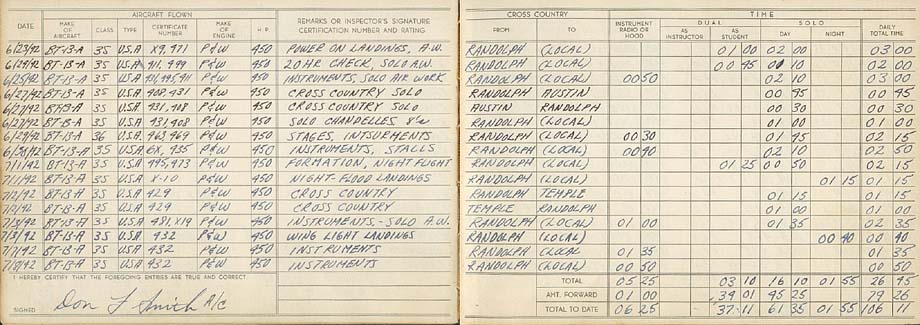 AIRCRAFT FLOWN
DATE MAKE OF AIRCRAFT CLASS TYPE CERTIFICATE NUMBER MAKE OF ENGINE H.P. REMARKS OR INSPECTOR'S SIGNATURE CERTIFICATION NUMBER AND RATING
6/23/42 BT-13-A 3S U.S.A X9, 971 P&W 450 POWER ON LANDINGS, A.W.
6/24/42 BT-13-A 3S U.S.A 911, 499 P&W 450 20 HR CHECK, SOLO A.W.
6/25/42 BT-13-A 3S U.S.A P&W 450 INSTRUMENTS, SOLO AIR WORK
6/27/42 BT-13-A 3S U.S.A 408,431 P&W 450 CROSS COUNTRY SOLO
6/27/42 BT-13-A 3S U.S.A 431,408 P&W 450 CROSS COUNTRY SOLO
6/27/42 BT-13-A 3S U.S.A 431,408 P&W 450 SOLO CHANDELLES
6/29/42 BT-13-A U.S.A 463,469 P&W 450 STAGES, INTSURMENTS
6/30/42 BT-13-A 3S U.S.A 6X, 435 P&W 450 INSTRUMENTS, STALLS
7/1/42 BT-13-A 3S U.S.A 445,473 P&W 450 FORMATION, NIGHT FLIGHT
7/1/42 BT-13-A 3S U.S.A X-10 P&W 450 NIGHT-FLOOD LANDINGS
7/2/42 BT-13-A 3S U.S.A 429 P&W 450 CROSS COUNTRY
7/2/42 BT-13-A 3S U.S.A 429 P&W 450 CROSS COUNTRY
7/3/42 BT-13-A 3S U.S.A 481,X19 P&W 450 INSTRUMENTS,-SOLO A.W.
BT-13-A 3S U.S.A 432 P&W 450 WING LIGHT LANDINGS
7/7/42 BT-13-A 3S U.S.A 432 P&W 450 INSTRUMENTS
7/8/42 BT-13-A 3S U.S.A 432 P&W 450 INSTRUMENTS
I HEREBY CERTIFY THAT THE FOREGOING ENTRIES ARE TRUE AND CORRECT
SIGNED Don L Smith A/C
CROSS COUNTRY TIME
FROM TO INSTRUMENT RADIO OR HOOD DUAL AS INSTRUCTOR AS STUDENT SOLO DAY NIGHT DAILY TOTAL TIME
RANDOLPH (LOCAL) 01 00 02 00 03 00
RANDOLPH (LOCAL) 00 45 10 02 00
RANDOLPH (LOCAL) 00 50 02 10 03 00
RANDOLPH AUSTIN 00 45 00 45
AUSTIN RANDOLPH 00 30 00 30
RANDOLPH (LOCAL) 01 00 01 00
RANDOLPH (LOCAL) 00 30 01 45 02 15
RANDOLPH (LOCAL) 00 40 02 10 02 50
RANDOLPH (LOCAL) 01 25 00 50 02 15
RANDOLPH (LOCAL) 01 15 01 15
RANDOLPH TEMPLE 01 15 01 15
TEMPLE RANDOLPH 01 00 01 00
RANDOLPH (LOCAL) 01 00 01 35 02 35
RANDOLPH (LOCAL) 00 40 00 40
RANDOLPH (LOCAL 01 35 01 35
RANDOLPH (LOCAL) 00 50 00 50
TOTAL 05 25 03 10 16 10 01 55 26 45
AMT. FORWARD 01 00 34 01 45 25 79 26
TOTAL TO DATE 06 25 37-11 61 35 01 55 106 11